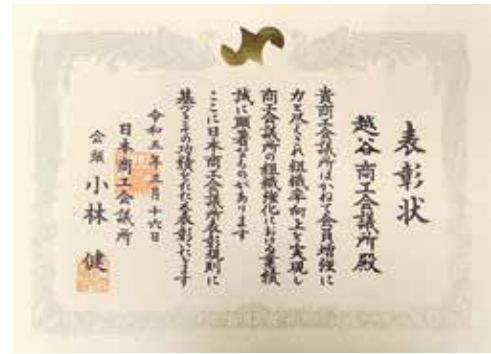 表彰状
越谷商工会議所殿
貴商工会議所はかねて会員増強に
力を尽くされ組織率向上を実現し
商工会議所の組織強化における業績
誠に顕著なものがあります
ここに日本商工会議所表彰規則に
基づきその功績をたたえ表彰いたします
令和五年三月十六日
日本商工会議所
会頭 小林 健